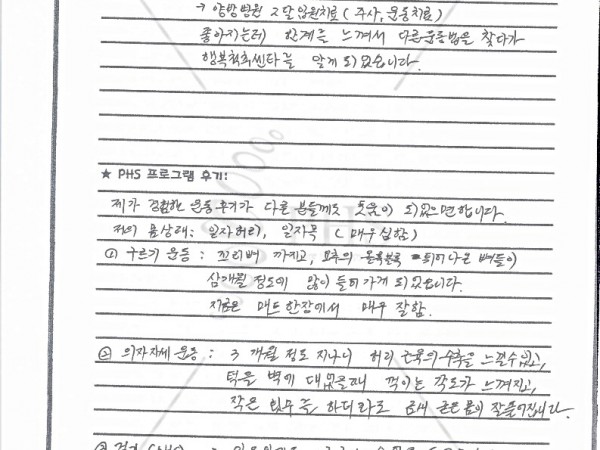 → 양방병원 2달 입원치료 ( 주사, 운동치료 )
좋아지는데 한계를 느껴서 다른운동법을 찾다가
행복척추센타를 알게 되었습니다.
★ PHS 프로그램 후기:
제가 경험한 운동후기가 다른 분들께도 도움이 되었으면합니다.
저의 몸상태: 일자허리, 일자목 ( 매우심함 )
① 구르기 운동 : 꼬리뼈 까지고, 요추의 울룩불룩 튀어나온 뼈들이
삼개월 정도에 많이 들어가게 되었습니다.
지금은 매트한장에서 매우 잘함.
② 의자자세 운동 : 3 개월 정도 지나니 허리 근육의 수축을 느낄수있고,
턱을 벽에 대 꺾이는 각도가 느껴지고,
작은 하더라도 굳은 몸이 잘풀어집니다.